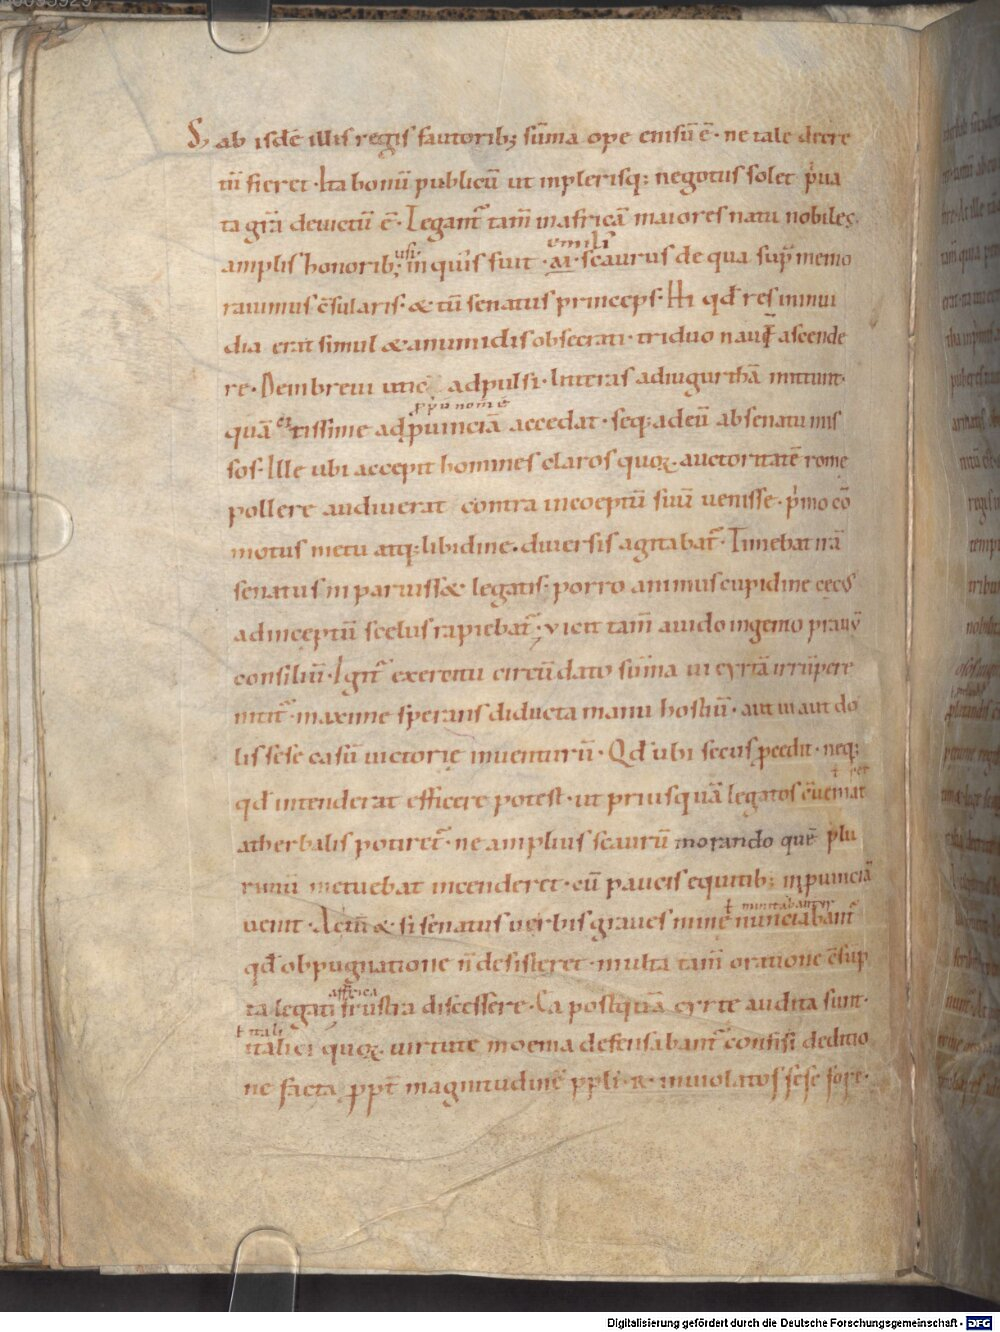 S; ab isdē illis regis fautorib; sūma ope enisū ē · ne tale decre
tū fieret · Ita bonū publicū ut inplerisq; negotiis solet p̍ua
ta gr̄a deuictū ē · Legant̄ tam̄ inafricā maiores natu nobiles
amplis honorib; usi · in quis fuit · aī · emili' scaurus de qua sup̄ memo
rauimus c̄sularis · & tū senatus princeps · Hi qđ res ininui
dia erat simul & anumidis obsecrati · triduo nauē ascende
re · Dein breui utic adpulsi · litteras adiugurthā mittunt ·
quā tissime adp̱uinciā accedat · seq; adeū absenatu mis
sos · Ille ubi accepit homines claros quoꝝ auctoritatē rome
pollere audiuerat contra inceptū suū uenisse · p̍mo cō
motus metu atq; libidine · diuersis agitabat̄ · Timebat irā
senatus ni paruiss& legatis; porro animus cupidine cęcꝰ
adinceptū scelus rapiebat̄; vicit tam̄ auido ingenio prauū
consiliū · Igit̄ exercitu circū dato sūma ui cyrtā irrūpere
nitit̄ · maxime sperans diducta manu hostiū · aut ui aut do
lis sese casū uictorię inuenturū · Qđ ubi secus p̱cedit · neq;
qđ intenderat efficere potest · ut prius quā legatos c̄ueniat
atherbalis potiret̄ · ne amplius scaurū morando quē plu
rimū metuebat incenderet · cū paucis equitib; inp̱uinciā
uenit · Actm̄ & si senatus uerbis graues minę nunciabant̄
ł nuntiabantur
qđ obpugnatione n̄ desisteret · multa tam̄ oratione c̄sūp
ta legati frustra discessere · Ea postquā cyrtę audita sunt ·
affrica
ł itali
italici quoꝝ uirtute moenia defensabant̄ confisi deditio
ne facta ꝓpt̄ magnitudinē ppl̄i · R · inuiolatos sese fore ·
Digitalisierung gefördert durch die Deutsche Forschungsgemeinschaft - DFG